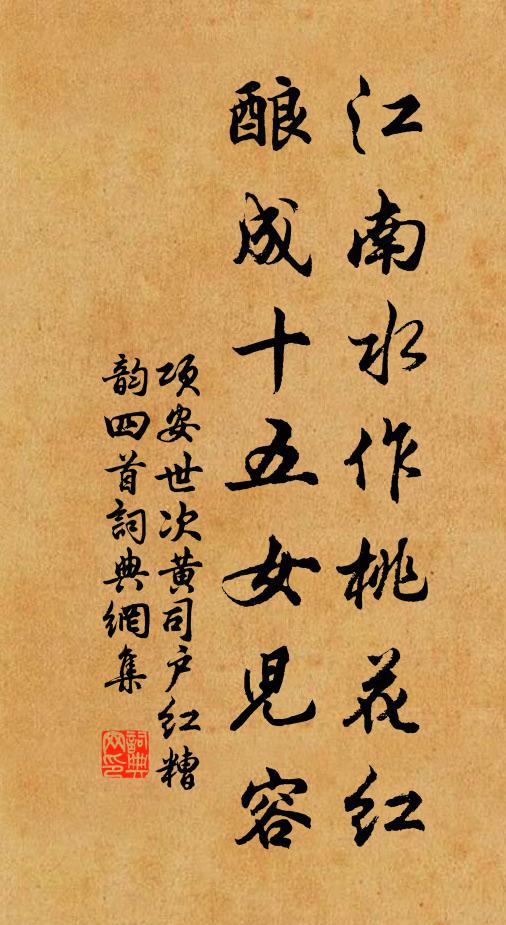 江南水作桃花红
酿成十五女児容
项安世次黄司户红糟
韵四首詞典網集
詞典网印